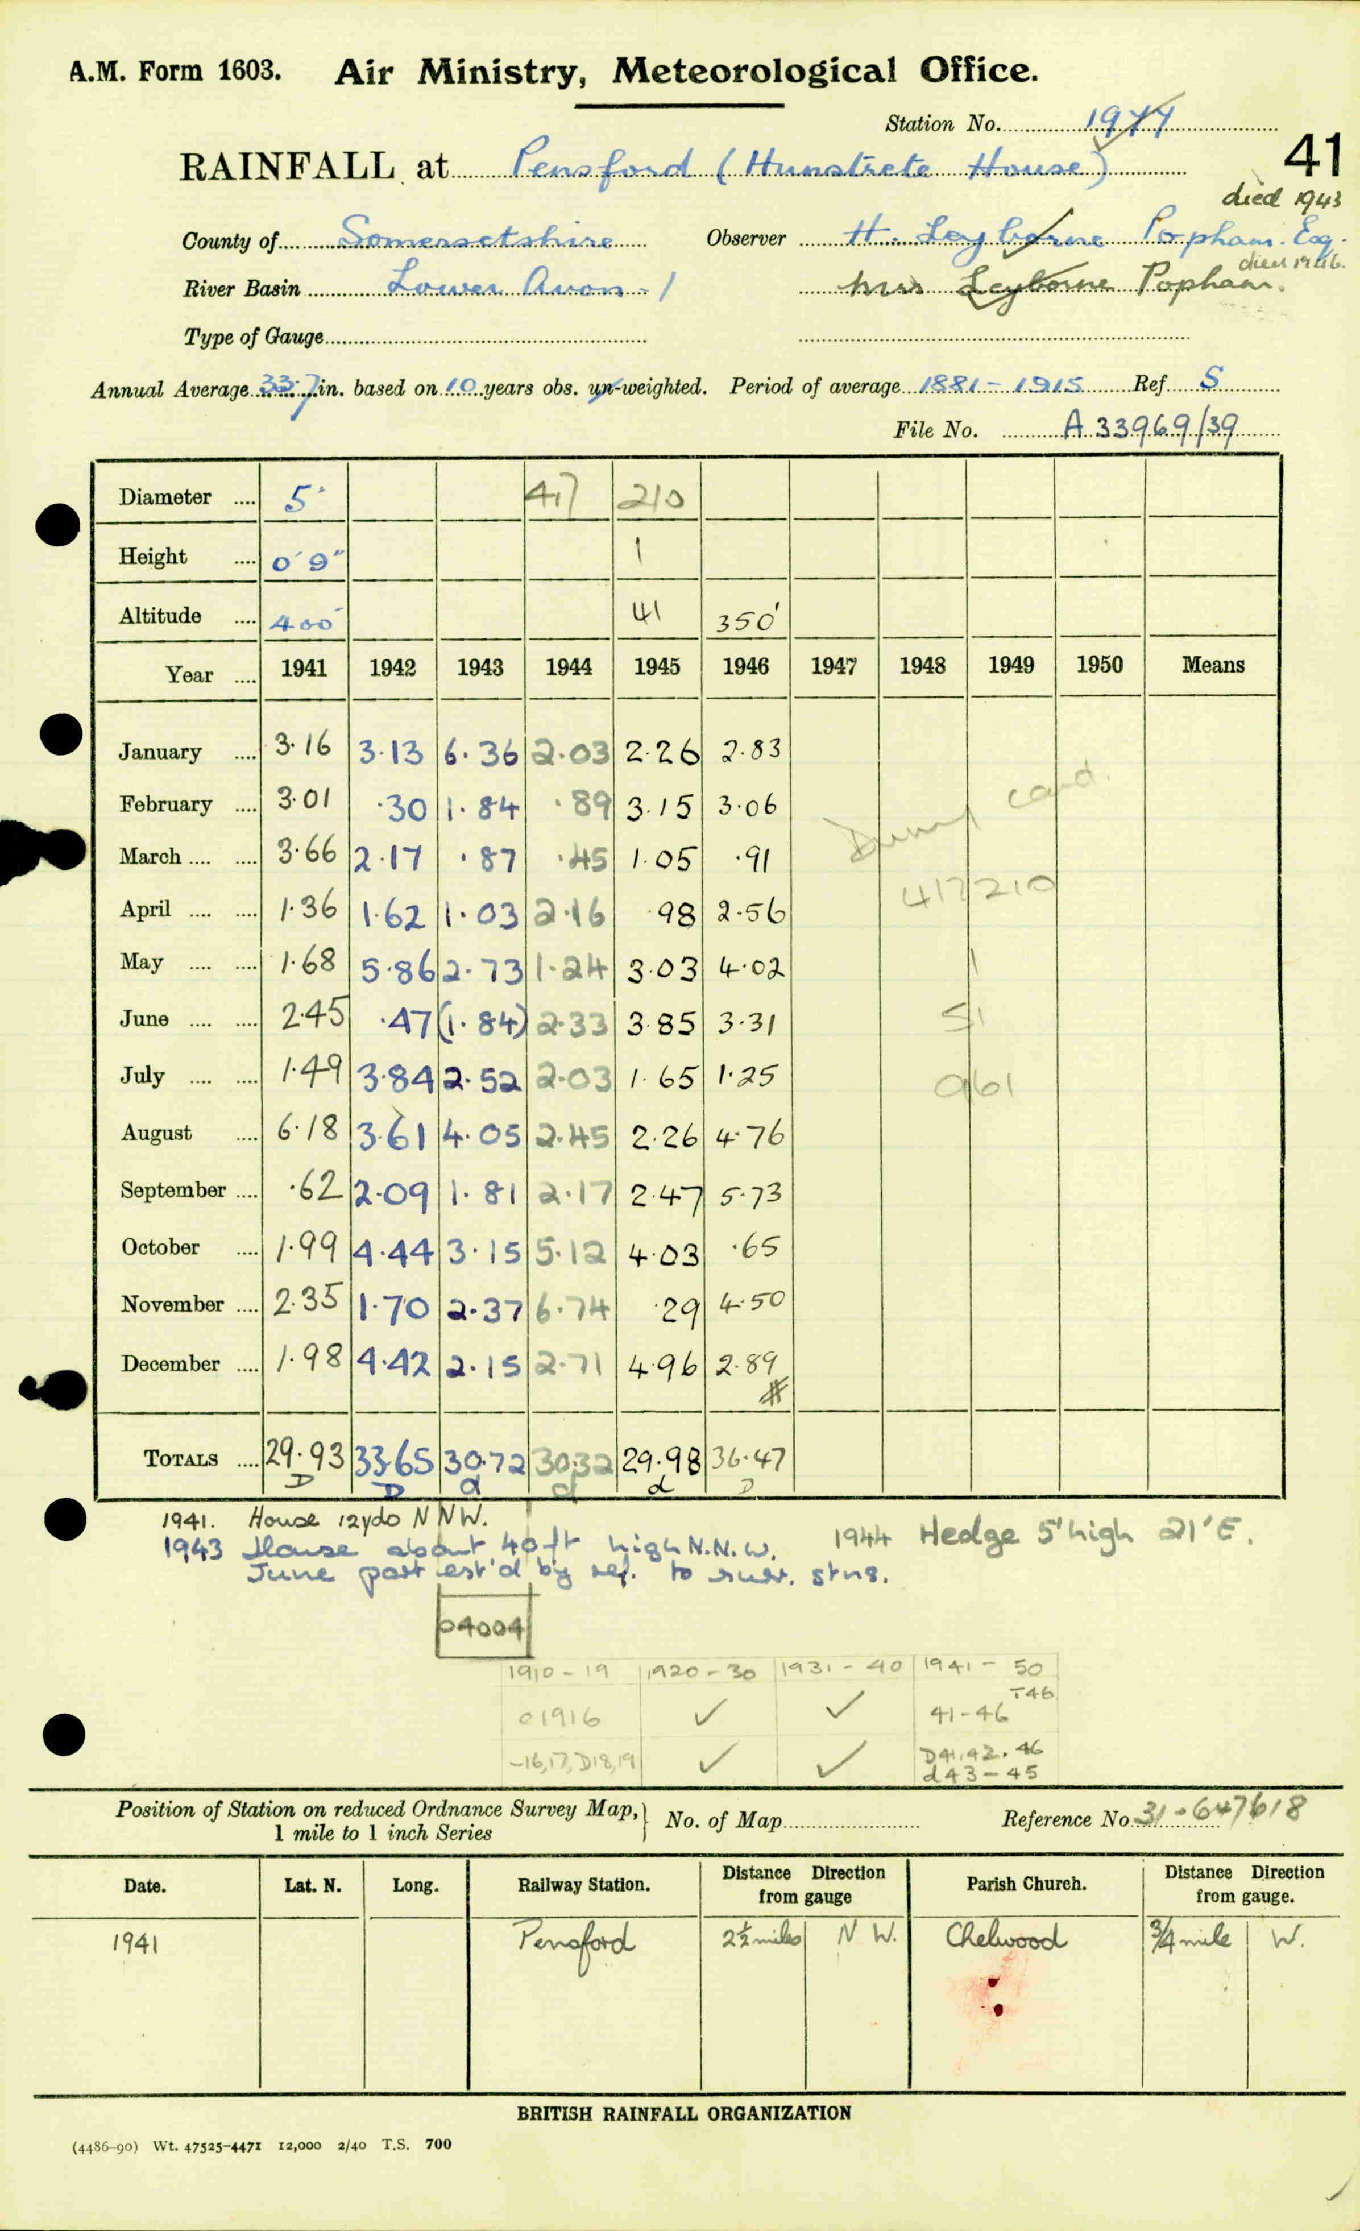 A.M. Form 1603. Air Ministry, Meteorological Office.
Station No. 1944
41
RAINFALL at Pensford (Hunstrete House)
died 1943
County of Somersetshire Observer H. Leyborne Popham. Esq.
died 1946.
River Basin Lower Avon - 1 Mrs Leyborne Popham.
Type of Gauge
Annual Average 33.7 in. based on 10 years obs. un-weighted. Period of average 1881 - 1915 Ref. S
File No. A 33969/39
Diameter .... 5" 417 210
Height .... 0' 9" 1
Altitude .... 400' 41 350'
Year .... 1941 1942 1943 1944 1945 1946 1947 1948 1949 1950 Means
January .... 3.16 3.13 6.36 2.03 2.26 2.83
February .... 3.01 .30 1.84 .89 3.15 3.06
March .... .... 3.66 2.17 .87 .45 1.05 .91
April .... .... 1.36 1.62 1.03 2.16 .98 2.56
May .... .... 1.68 5.86 2.73 1.24 3.03 4.02
June .... .... 2.45 .47 (1.84) 2.33 3.85 3.31
July .... .... 1.49 3.84 2.52 2.03 1.65 1.25
August .... 6.18 3.61 4.05 2.45 2.26 4.76
September .... .62 2.09 1.81 2.17 2.47 5.73
October .... 1.99 4.44 3.15 5.12 4.03 .65
November .... 2.35 1.70 2.37 6.74 .29 4.50
December .... 1.98 4.42 2.15 2.71 4.96 2.89
#
card.
417210
1
51
961
TOTALS .... 29.93 33.65 30.72 30.32 29.98 36.47
D D d d d D
1941. House 12yds NNW.
1943 House about 40ft high N.N.W. 1944 Hedge 5' high 21' E.
June part est'd by ref. to surr. stns.
04004
1910 - 19 1920 - 30 1931 - 40 1941 - 50
T46
01916 ✓ ✓ 41-46
-16,17, D18,19 ✓ ✓ D41,42.46
d43-45
Position of Station on reduced Ordnance Survey Map, 1 mile to 1 inch Series No. of Map Reference No. 31-647618
Date. Lat. N. Long. Railway Station. Distance Direction from gauge Parish Church. Distance Direction from gauge.
1941 Pensford 2½ miles N W. Chelwood ¾ mile W.
BRITISH RAINFALL ORGANIZATION
(4486-90) Wt. 47525-4471 12,000 2/40 T.S. 700